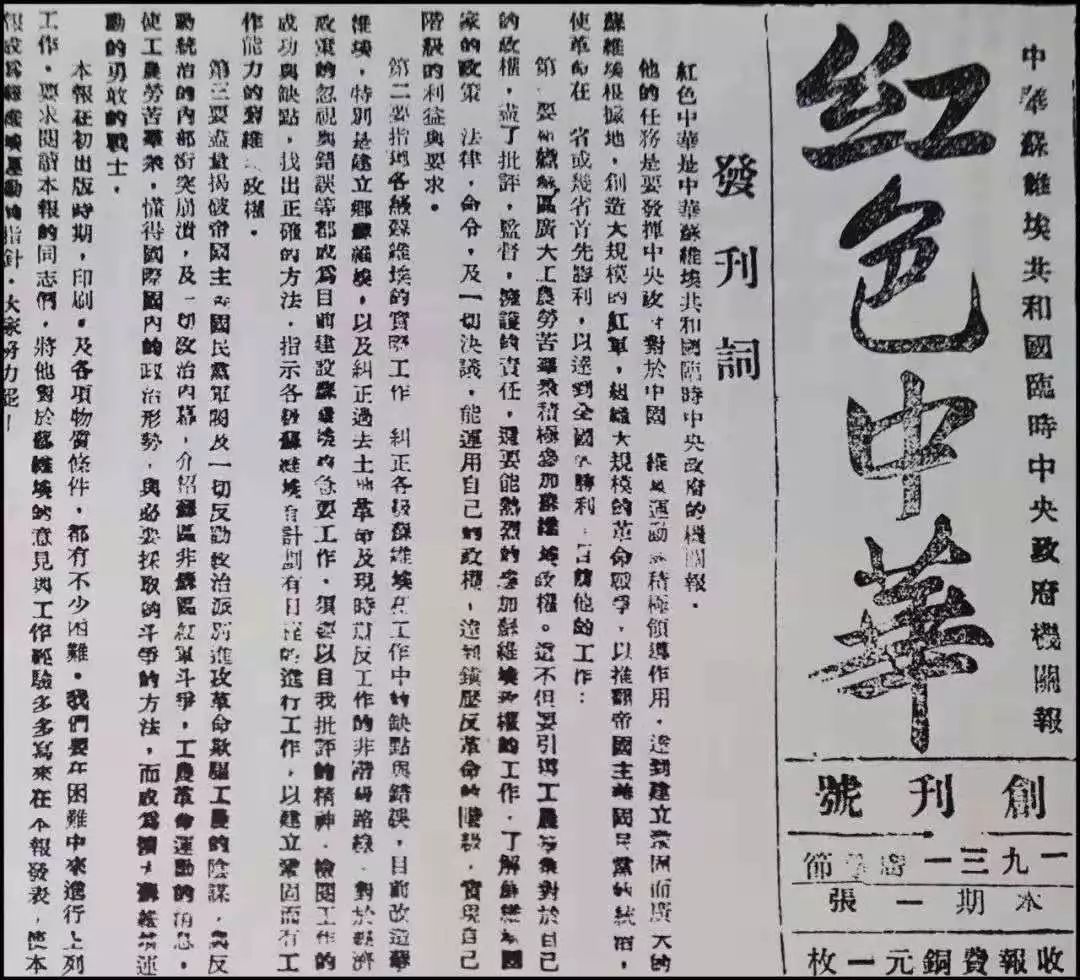 中華蘇維埃共和國臨時中央政府機關報
紅色中華
創刊號
一九三一 節
本期一張
收報費銅元一枚
發刊詞
紅色中華是中華蘇維埃共和國臨時中央政府的機關報．
他的任務是要發揮中央政府對於中國 維埃運動的積極領導作用．達到建立鞏固而廣大的
蘇維埃根據地，創造大規模的紅軍，組織大規模的革命戰爭，以推翻帝國主義國民黨的統治，
使革命在 省或幾省首先勝利，以達到全國的勝利．目前他的工作：
第 要 區廣大工農勞苦羣衆積極參加蘇維埃政權。這不但要引導工農羣衆對於自己
的政權，盡了批評，監督，擁護的責任，還要能熱烈的參加蘇維埃政權的工作．了解蘇維埃國
家的政策 法律，命令，及一切決議，能運用自己的政權，達到鎮壓反革命的階級，實現自己
階級的利益與要求。
第二要指導各級蘇維埃的實際工作 糾正各級蘇維埃在工作中的缺點與錯誤，目前改造蘇
維埃，特別是建立鄉蘇維埃，以及糾正過去土地革命及現時肅反工作的非階級路線．對於經濟
政策的忽視與錯誤等都成爲目前建設蘇維埃的急要工作．須要以自我批評的精神．檢閱工作的
成功與缺點，找出正確的方法．指示各級蘇維埃有計劃有日程的進行工作，以建立鞏固而有工
作能力的蘇維埃政權．
第三要盡量揭破帝國主義國民黨軍閥及一切反動政治派別進攻革命欺騙工農的陰謀．與反
動統治的內部衝突崩潰，及一切政治內幕，介紹蘇區非蘇區紅軍斗爭，工農革命運動的消息，
使工農勞苦羣衆，懂得國際國內的政治形勢，與必要採取的斗爭的方法，而成爲 蘇維埃運
動的勇敢的戰士．
本報在初出版時期，印刷，及各項物質條件，都有不少困難。我們要在困難中來進行上列
工作．要求閱讀本報的同志們，將他對於蘇維埃的意見與工作經驗多多寫來在本報發表，使本
報成爲蘇維埃運動的指針．大家努力罷！